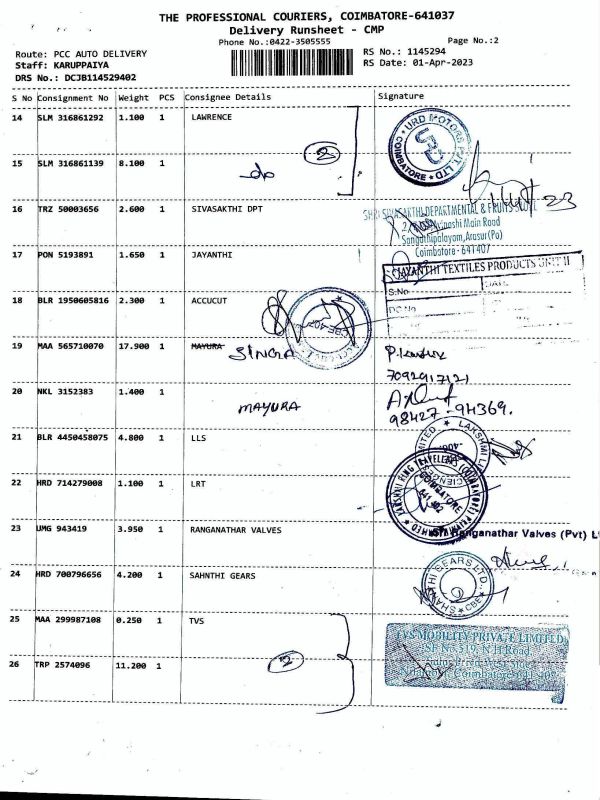 THE PROFESSIONAL COURIERS, COIMBATORE-641037
Delivery Runsheet - CMP
Phone No.:0422-3505555
Page No.:2
Route: PCC AUTO DELIVERY
RS No.: 1145294
Staff: KARUPPAIYA
RS Date: 01-Apr-2023
DRS No.: DCJB114529402
S No Consignment No Weight PCS Consignee Details Signature
14 SLM 316861292 1.100 1 LAWRENCE
URD MOTORS PVT. LTD
COIMBATORE
2
15 SLM 316861139 8.100 1 do
23
16 TRZ 50003656 2.600 1 SIVASAKTHI DPT
SHRI SIVASAKTHI DEPARTMENTAL & FRUITS
Main Road
Sangothipalayam, Arasur(Po)
Coimbatore - 641407
17 PON 5193891 1.650 1 JAYANTHI
JAYANTHI TEXTILES PRODUCTS UNIT II
S.No
DATE
DC No
18 BLR 1950605816 2.300 1 ACCUCUT
19 MAA 565710070 17.900 1 MAYURA SINGA
7092917121
20 NKL 3152383 1.400 1 MAYURA
98427-94369.
21 BLR 4450458075 4.800 1 LLS
LAKSHMI
22 HRD 714279008 1.100 1 LRT
LAKSHMI RING TRAVELLERS (COIMBATORE)
COIMBATORE
641 402
23 UMG 943419 3.950 1 RANGANATHAR VALVES
Ranganathar Valves (Pvt) L
24 HRD 700796656 4.200 1 SAHNTHI GEARS
SHANTHI GEARS LTD.,
CBE
25 MAA 299987108 0.250 1 TVS
TVS MOBILITY PRIVATE LIMITED
SF No 519, N.H Road,
26 TRP 2574096 11.200 1
2
Coimbatore-641 407